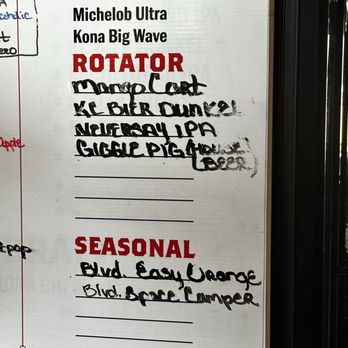 Michelob Ultra
Kona Big Wave
ROTATOR
Mango Cart
KC BIER DUNKEL
NEVERSAY IPA
GIGGLE PIG (HOUSE
BEER)
SEASONAL
Blvd. Easy Orange
Blvd. Space Camper